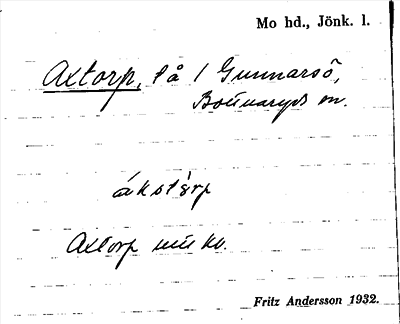 Mo hd., Jönk. l.
Axtorp, lå / Gunnarsö,
Bottnaryds sn.
ákstèrp
Axtorp
Fritz Andersson 1932.